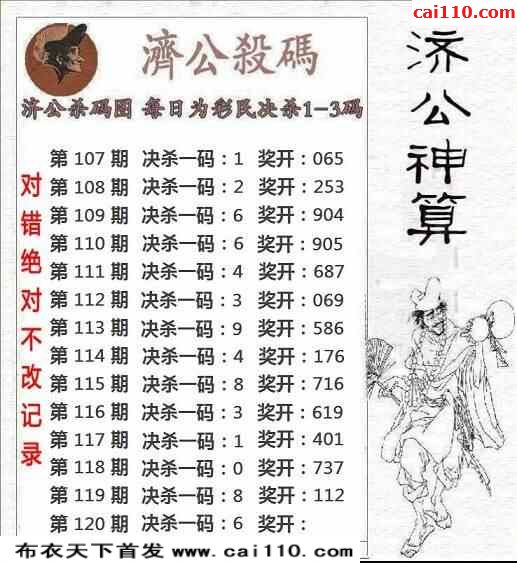 cai110.com
濟公殺碼
济公杀码图 每日为彩民决杀1-3码
济公神算
对错绝对不改记录
第 107 期 决杀一码：1 奖开：065
第 108 期 决杀一码：2 奖开：253
第 109 期 决杀一码：6 奖开：904
第 110 期 决杀一码：6 奖开：905
第 111 期 决杀一码：4 奖开：687
第 112 期 决杀一码：3 奖开：069
第 113 期 决杀一码：9 奖开：586
第 114 期 决杀一码：4 奖开：176
第 115 期 决杀一码：8 奖开：716
第 116 期 决杀一码：3 奖开：619
第 117 期 决杀一码：1 奖开：401
第 118 期 决杀一码：0 奖开：737
第 119 期 决杀一码：8 奖开：112
第 120 期 决杀一码：6 奖开：
布衣天下首发 www.cai110.com